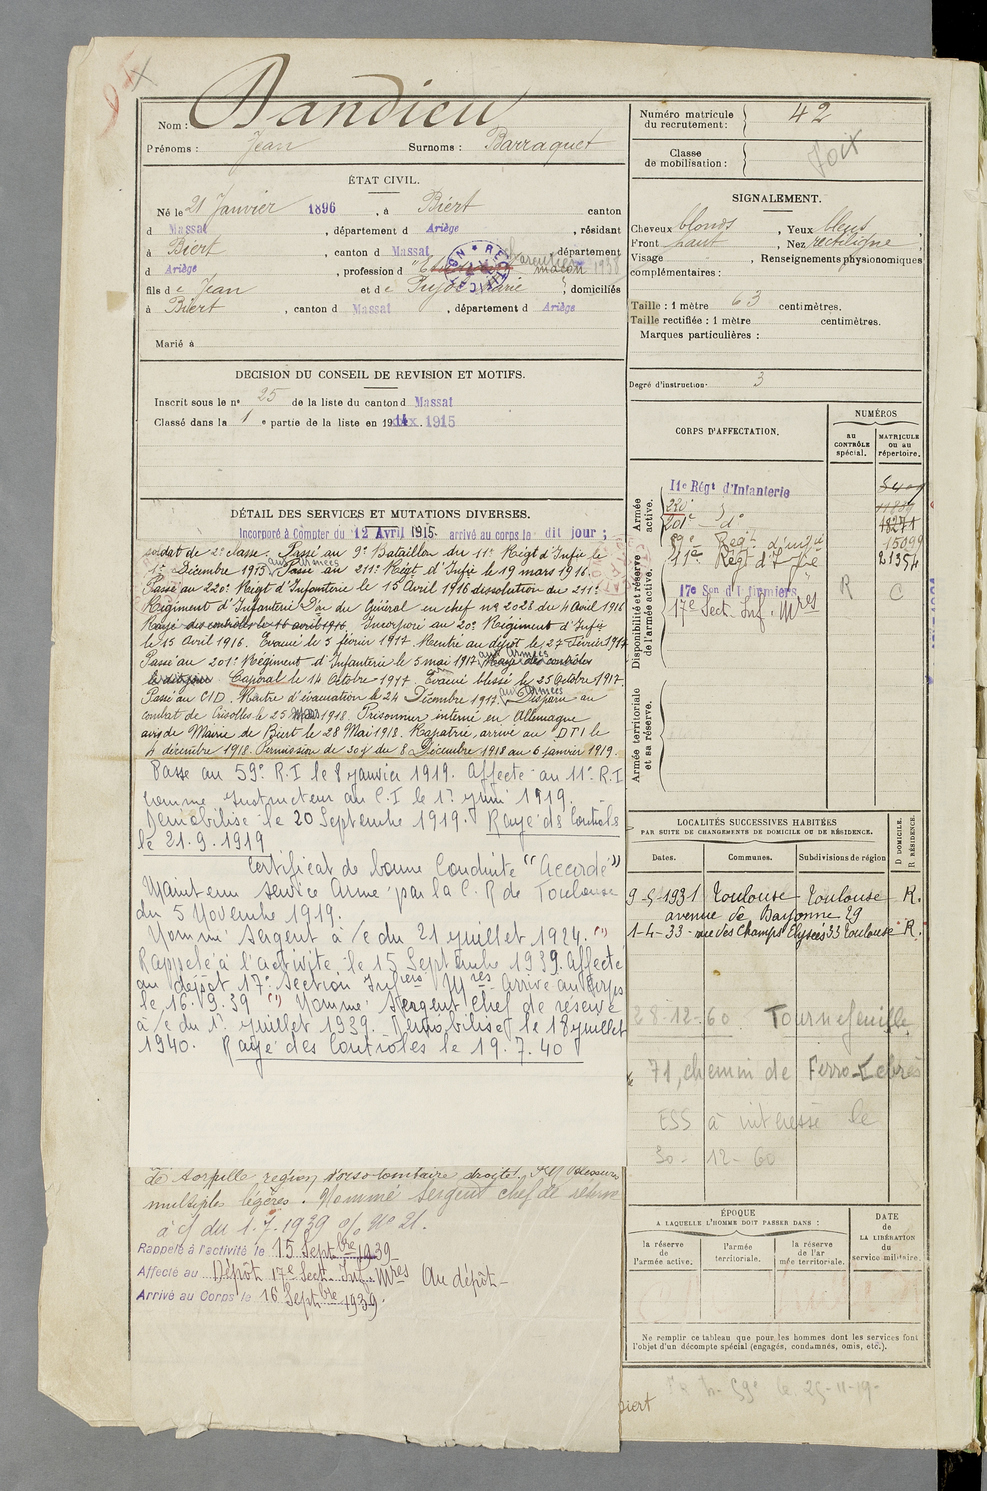 Nom : Dandieu
Prénoms : Jean Surnoms : Barraquet
Numéro matricule du recrutement : 42
Classe de mobilisation :
Foix
ÉTAT CIVIL.
Né le 21 Janvier 1896, à Biert canton
d Massat, département d Ariège, résidant
à Biert, canton d Massat, département
d Ariège, profession d maçon 1938
fils de Jean et de Pujol Marie, domiciliés
à Biert, canton d Massat, département d Ariège
Marié à
RECTIFICATION
SIGNALEMENT.
Cheveux blonds, Yeux bleus
Front haut, Nez rectiligne
Visage, Renseignements physionomiques
complémentaires :
Taille : 1 mètre 63 centimètres.
Taille rectifiée : 1 mètre centimètres.
Marques particulières :
Degré d'instruction 3
DECISION DU CONSEIL DE REVISION ET MOTIFS.
Inscrit sous le n° 25 de la liste du canton d Massat
Classé dans la 1 e partie de la liste en 19 1915
DÉTAIL DES SERVICES ET MUTATIONS DIVERSES.
Incorporé à Compter du 12 Avril 1915. arrivé au corps le dit jour ;
soldat de 2e classe. Passé au 9e Bataillon du 11e Régt d'Infie le
1er Décembre 1915 aux armées Passé au 211e Régt d'Infie le 19 mars 1916.
Passé au 220e Régt d'Infanterie le 15 Avril 1916 dissolution du 211e
Régiment d'Infanterie Don du Général en chef no 2028 du 4 avril 1916
Rayé des contrôles le 16 avril 1916. Incorporé au 20e Régiment d'Infie
le 15 Avril 1916. Evacué le 5 février 1917. Rentré au dépôt le 27 Février 1917
Passé au 201e Régiment d'Infanterie le 5 mai 1917 aux Armées Rayé des contrôles
le dit jour Caporal le 14 Octobre 1917. Evacué blessé le 25 Octobre 1917.
Passé au CID. Rentre d'évacuation le 24 Décembre 1917. aux armées Disparu au
combat de Crisolles le 25 Mars 1918. Prisonnier interné en Allemagne
avis de Mairie de Biert le 28 Mai 1918. Rapatrié, arrivé au DTI le
4 décembre 1918. Permission de 30 j du 8 Décembre 1918 au 6 janvier 1919.
Passé au 59e R.I le 8 janvier 1919. Affecté au 11e R.I
comme instructeur au C.I le 1er juin 1919.
Démobilisé le 20 Septembre 1919. Rayé des Contrôles
le 21.9.1919
Certificat de bonne Conduite "Accordé"
Maintenu service Armé par la C.R de Toulouse
du 5 Novembre 1919.
Nommé Sergent à /c du 21 juillet 1924. (1)
Rappelé à l'activité le 15 Septembre 1939. Affecté
au dépôt 17e Section Infiers Mres Arrivé au Corps
le 16.9.39 (1) Nommé Sergent Chef de réserve
à /c du 1er juillet 1939. Démobilisé le 18 juillet
1940. Rayé des Contrôles le 19.7.40
région dorso-lombaire droite.
multiples légères. Nommé sergent chef de réserve
à c/ du 1.7.1939 o/ No 21.
Rappelé à l'activité le 15 Septbre 1939
Affecté au Dépôt 17e Sect. Inf. Mres Au dépôt
Arrivé au Corps le 16 Septbre 1939.
CORPS D'AFFECTATION.
NUMÉROS
au CONTRÔLE spécial.
MATRICULE ou au répertoire.
Armée active.
11e Régt d'Infanterie
220e
201e - do
59e Régt d'infie 15099
11e Régt d'Infie 21354
Disponibilité et réserve de l'armée active.
17e Son d'Infirmiers R C
17e Sect. Inf. Mres
Armée territoriale et sa réserve.
LOCALITÉS SUCCESSIVES HABITÉES
PAR SUITE DE CHANGEMENTS DE DOMICILE OU DE RÉSIDENCE.
Dates. Communes. Subdivisions de région
D DOMICILE. R RÉSIDENCE.
9-5-1931 Toulouse Toulouse R.
avenue de Bayonne 29
1-4-33 - rue des Champs Elysées 33 Toulouse R.
28-12-60 Tournefeuille
71, chemin de Ferro-Lebrès
ESS à intéressé le
30-12-60
ÉPOQUE
A LAQUELLE L'HOMME DOIT PASSER DANS :
la réserve de l'armée active.
l'armée territoriale.
la réserve de l'armée territoriale.
DATE de LA LIBÉRATION du service militaire.
Ne remplir ce tableau que pour les hommes dont les services font
l'objet d'un décompte spécial (engagés, condamnés, omis, etc.).
59e le 25-11-19-
Biert